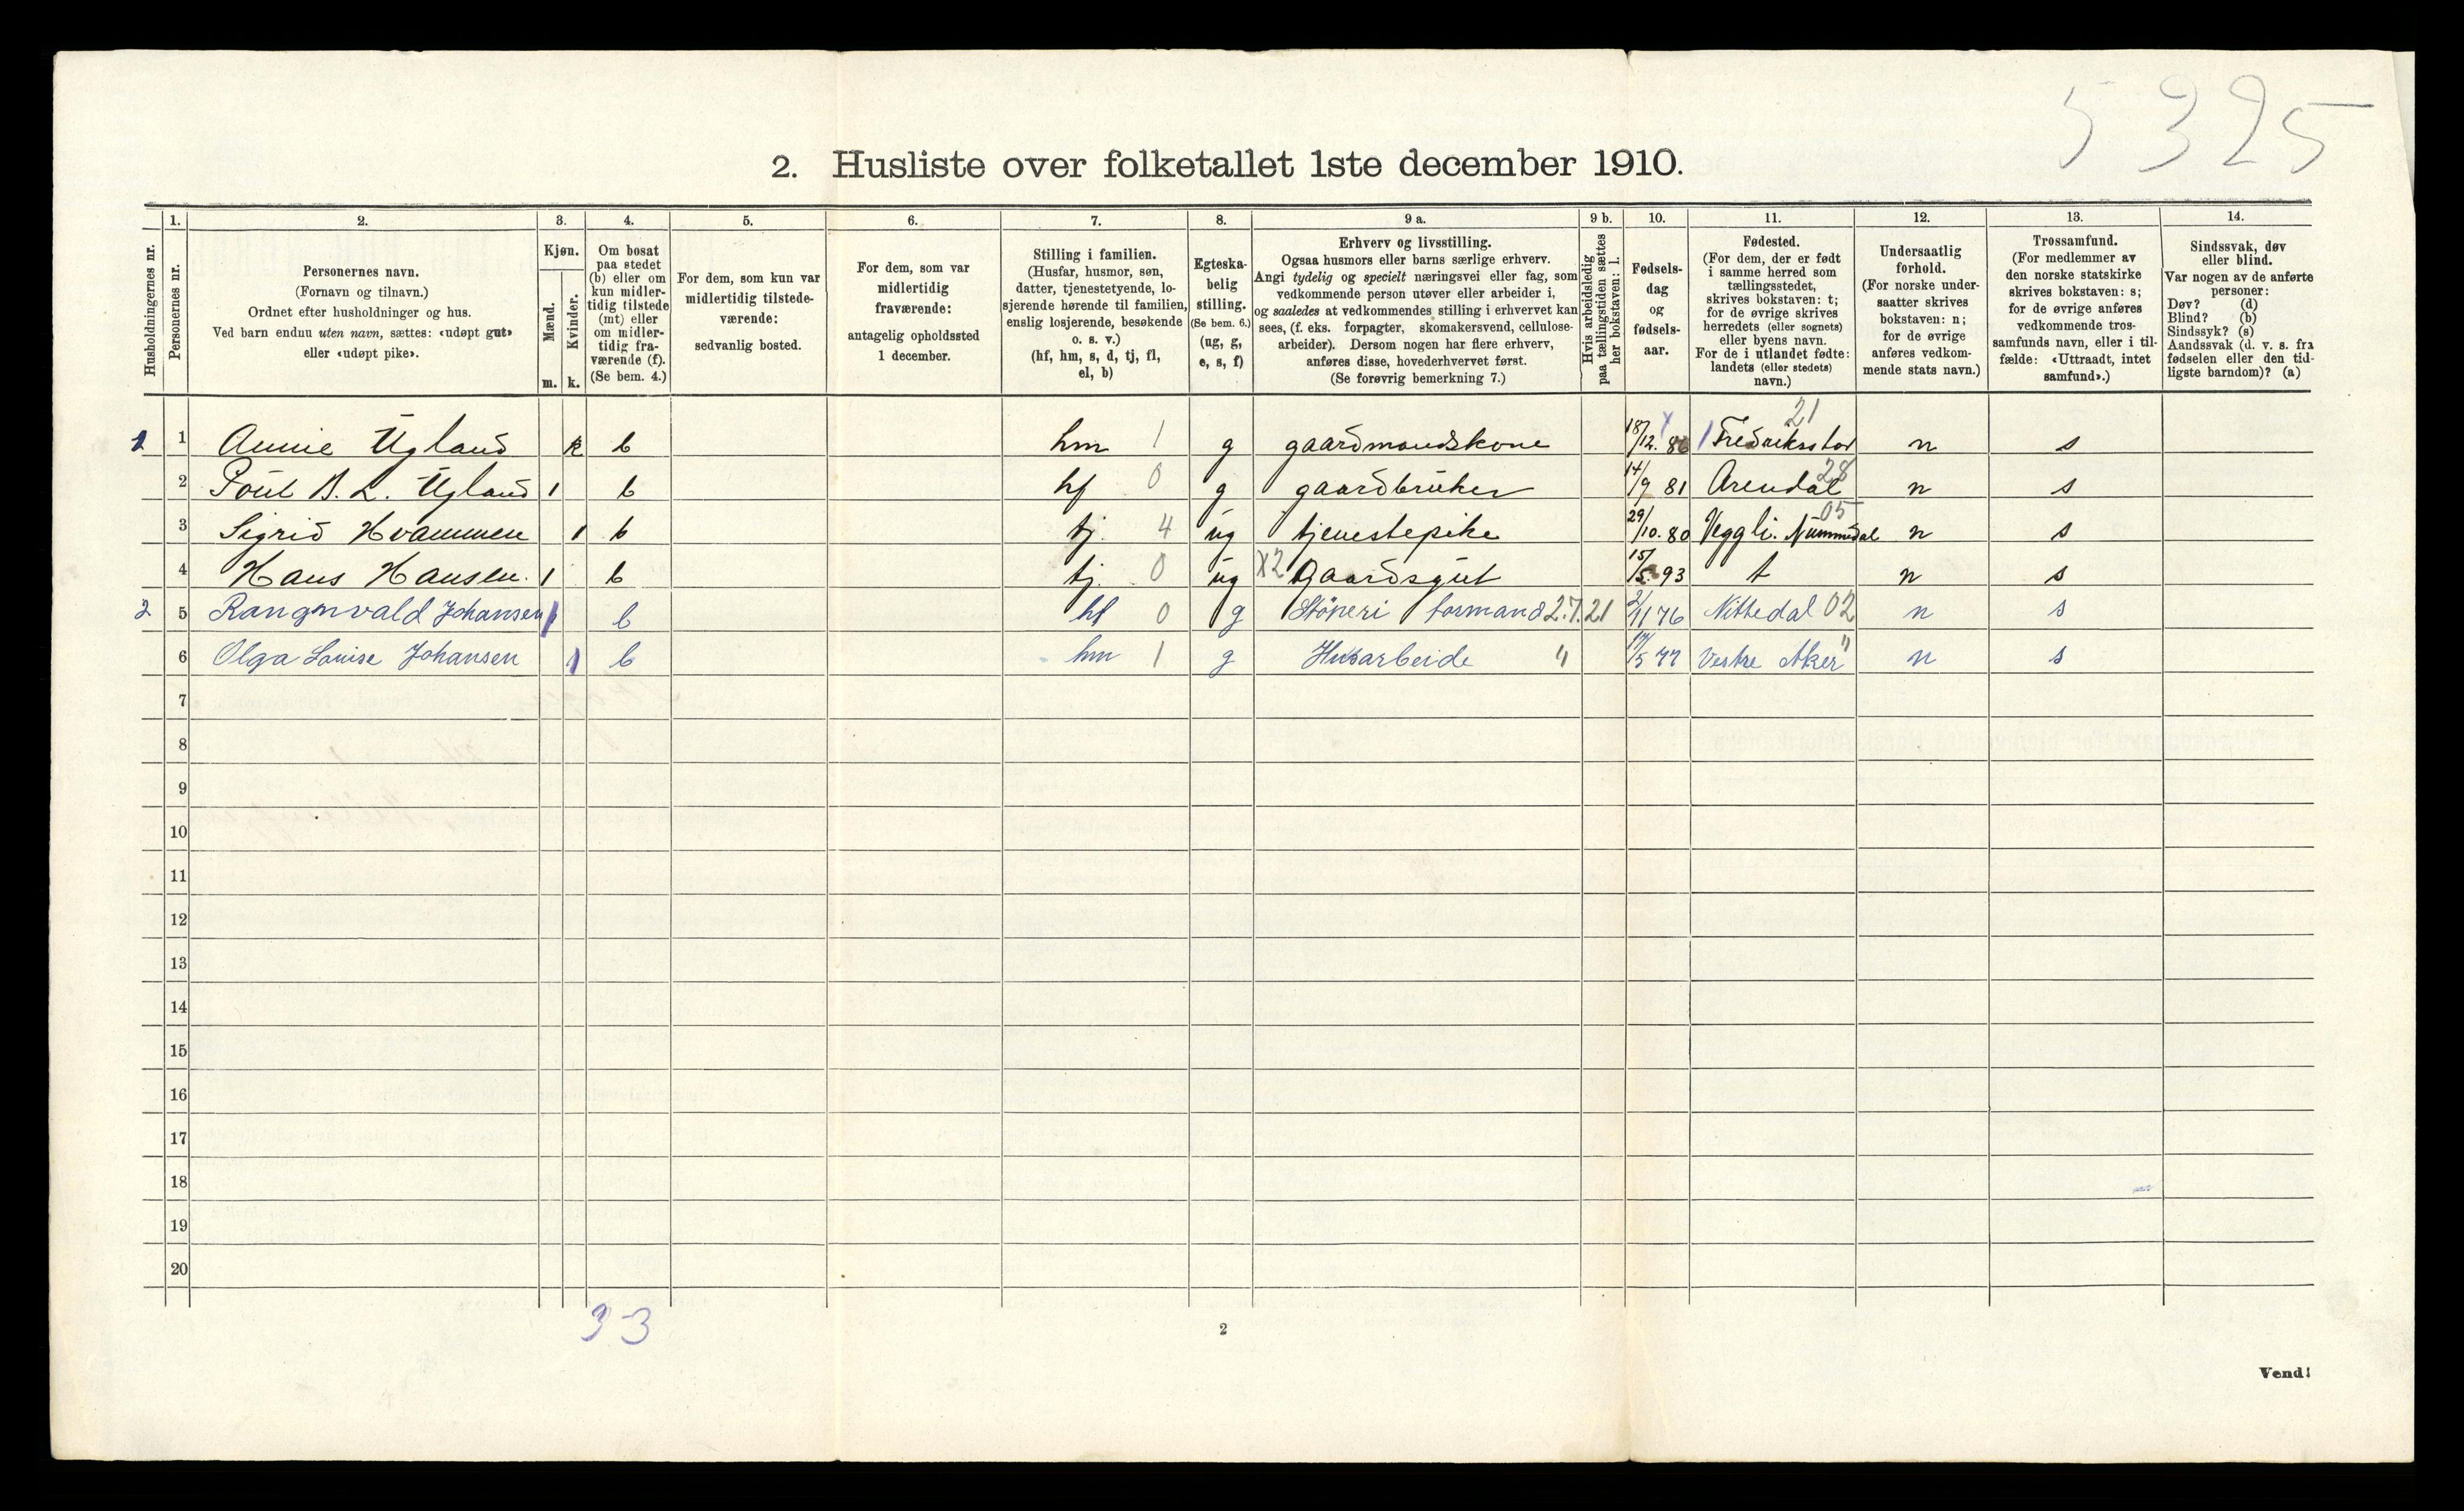 5325
2. Husliste over folketallet 1ste december 1910.
Husholdningernes nr.
1.
Personernes nr.
2.
Personernes navn.
(Fornavn og tilnavn.)
Ordnet efter husholdninger og hus.
Ved barn endnu uten navn, sættes: «udøpt gut»
eller «udøpt pike».
3.
Kjøn.
Mænd.
Kvinder.
m. k.
4.
Om bosat
paa stedet
(b) eller om
kun midler-
tidig tilstede
(mt) eller
om midler-
tidig fra-
værende (f).
(Se bem. 4.)
5.
For dem, som kun var
midlertidig tilstede-
værende:
sedvanlig bosted.
6.
For dem, som var
midlertidig
fraværende:
antagelig opholdssted
1 december.
7.
Stilling i familien.
(Husfar, husmor, søn,
datter, tjenestetyende, lo-
sjerende hørende til familien,
enslig losjerende, besøkende
o. s. v.)
(hf, hm, s, d, tj, fl,
el, b)
8.
Egteska-
belig
stilling.
(Se bem. 6.)
(ug, g,
e, s, f)
9 a.
Erhverv og livsstilling.
Ogsaa husmors eller barns særlige erhverv.
Angi tydelig og specielt næringsvei eller fag, som
vedkommende person utøver eller arbeider i,
og saaledes at vedkommendes stilling i erhvervet kan
sees, (f. eks. forpagter, skomakersvend, cellulose-
arbeider). Dersom nogen har flere erhverv,
anføres disse, hovederhvervet først.
(Se forøvrig bemerkning 7.)
9 b.
Hvis arbeidsledig
paa tællingstiden sættes
her bokstaven: l.
10.
Fødsels-
dag
og
fødsels-
aar.
11.
Fødested.
(For dem, der er født
i samme herred som
tællingsstedet,
skrives bokstaven: t;
for de øvrige skrives
herredets (eller sognets)
eller byens navn.
For de i utlandet fødte:
landets (eller stedets)
navn.)
12.
Undersaatlig
forhold.
(For norske under-
saatter skrives
bokstaven: n;
for de øvrige
anføres vedkom-
mende stats navn.)
13.
Trossamfund.
(For medlemmer av
den norske statskirke
skrives bokstaven: s;
for de øvrige anføres
vedkommende tros-
samfunds navn, eller i til-
fælde: «Uttraadt, intet
samfund».)
14.
Sindssvak, døv
eller blind.
Var nogen av de anførte
personer:
Døv? (d)
Blind? (b)
Sindssyk? (s)
Aandssvak (d. v. s. fra
fødselen eller den tid-
ligste barndom)? (a)
21
1 1 Annie Ugland k b hm 1 g gaardmandskone 18/12. 86 Fredriksstad n s
2 Poul B. L. Ugland 1 b hf 0 g gaardbruker 14/9 81 Arendal 28 n s
3 Sigrid Hvammen 1 b tj. 4 ug tjenestepike 29/10. 80 Veggli. Nummedal 05 n s
4 Hans Hansen. 1 b tj. 0 ug X2 Gaardsgut 15/5. 93 t n s
2 5 Rangnvald Johansen 1 b hf 0 g Støperi formand 2.7.21 2/11 76 Nittedal 02 n s
6 Olga Louise Johansen 1 b hm 1 g Husarbeide " 17/5 77 Vestre Aker " n s
7
8
9
10
11
12
13
14
15
16
17
18
19
20
3 3
2
Vend!